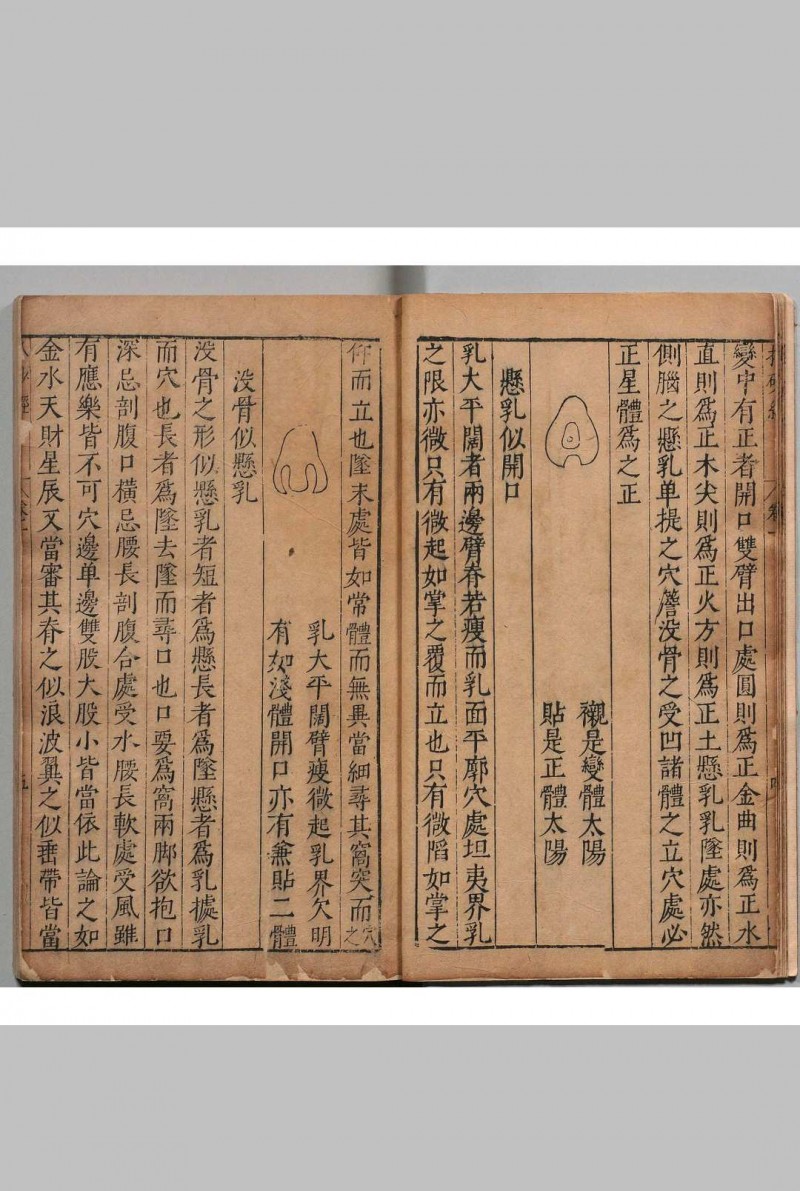 變中有正者開口雙臂出口處圓則爲正金曲則爲正水
直則爲正木尖則爲正火方則爲正土懸乳乳墜處亦然
側腦之懸乳单提之穴簷没骨之受凹諸體之立穴處必
正星體爲之正
襯是變體太陽
貼是正體太陽
懸乳似開口
乳大平闊者兩邊臂脊若瘦而乳面平廓穴處坦夷界乳
之限亦微只有微起如掌之覆而立也只有微陷如掌之
仰而立也墜末處皆如常體而無異當細尋其窩突而穴之
乳大平闊臂瘦微起乳界欠明
有如淺體開口亦有兼貼二體
没骨似懸乳
没骨之形似懸乳者短者爲懸長者爲墜懸者爲乳據乳
而穴也長者爲墜去墜而尋口也口要爲窩兩脚欲抱口
深忌剖腹口橫忌腰長剖腹合處受水腰長軟處受風雖
有應樂皆不可穴邊单邊雙股大股小皆當依此論之如
金水天財星辰又當審其脊之似浪波翼之似垂帶皆當